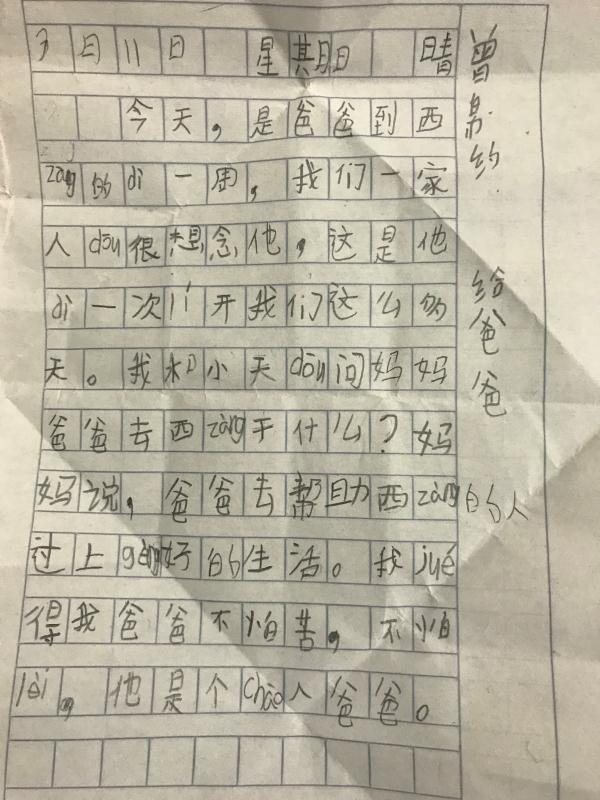 3月11日 星期日 晴
今天，是爸爸到西
zàng的dì一周，我们一家
人dōu很想念他，这是他
dì一次lí开我们这么多
天。我和小天dōu问妈妈
爸爸去西zàng干什么？妈
妈说，爸爸去帮助西zàng的人
过上gèng好的生活。我jué
得我爸爸不怕苦，不怕
lèi，他是个chāo人爸爸。
给爸爸